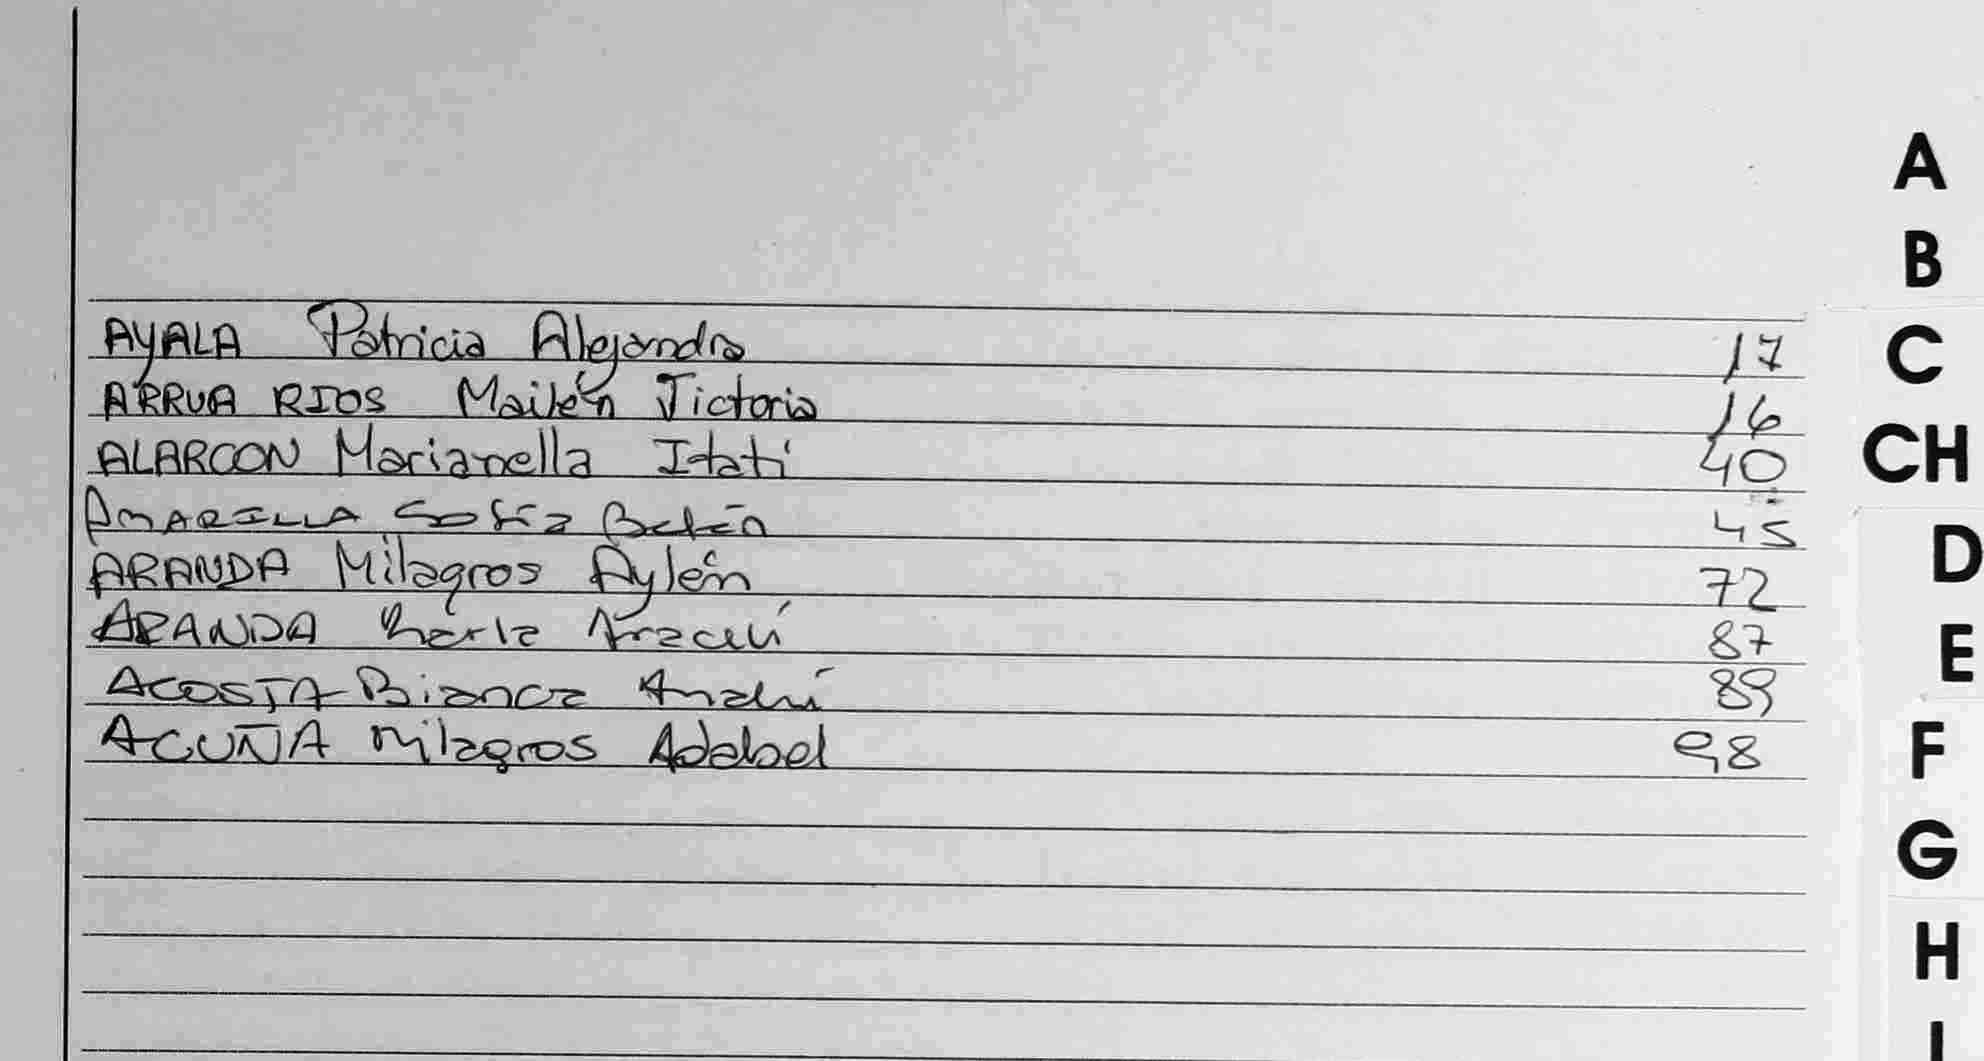 AYALA Patricia Alejandra 17
ARRUA RIOS Mailén Victoria 16
ALARCON Marianella Itatí 40
AMARILLA Sofía Belén 45
ARANDA Milagros Aylén 72
ARANDA Karla Araceli 87
ACOSTA Bianca Anahí 89
ACUÑA Milagros Adabel 98
A
B
C
CH
D
E
F
G
H
I